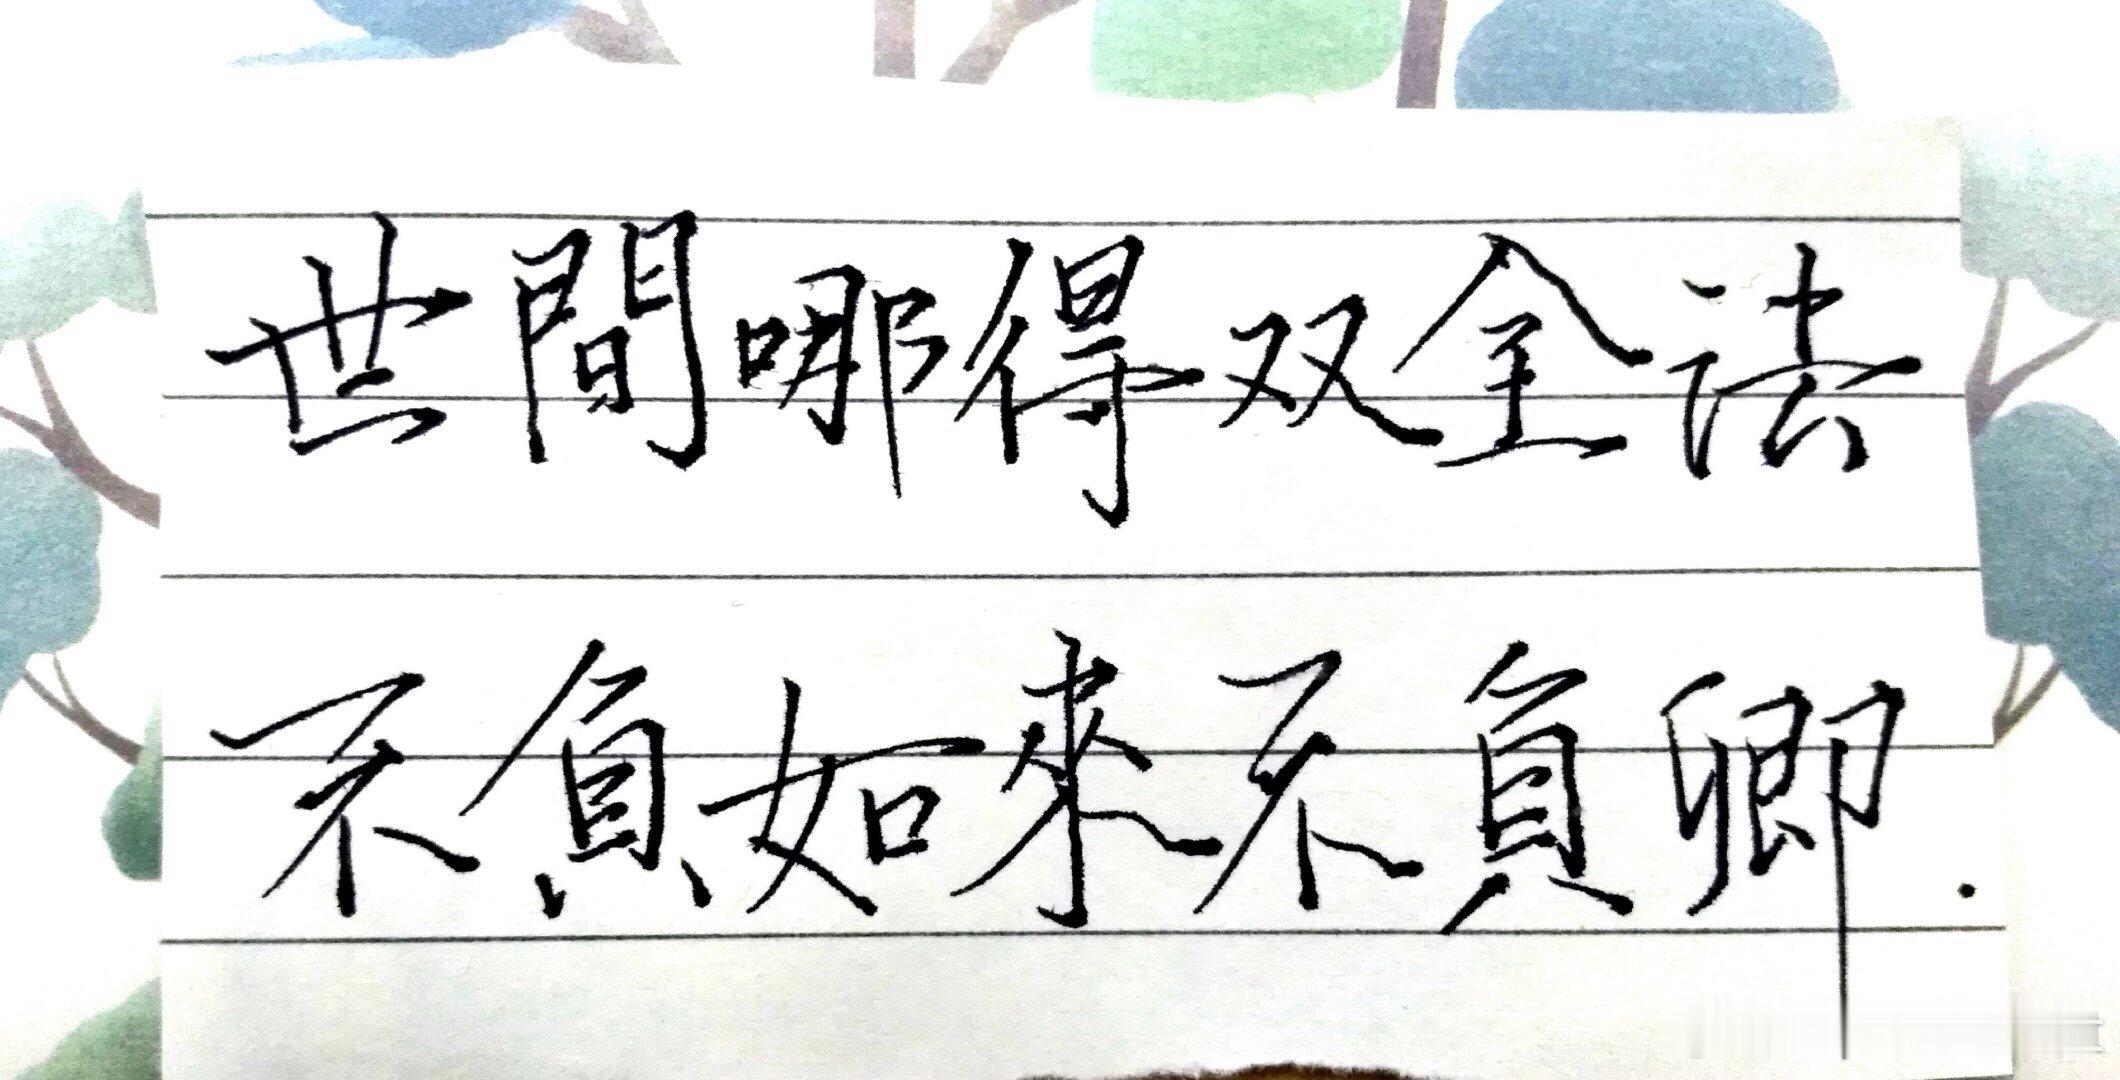 世間哪得双全法
不負如來不負卿.